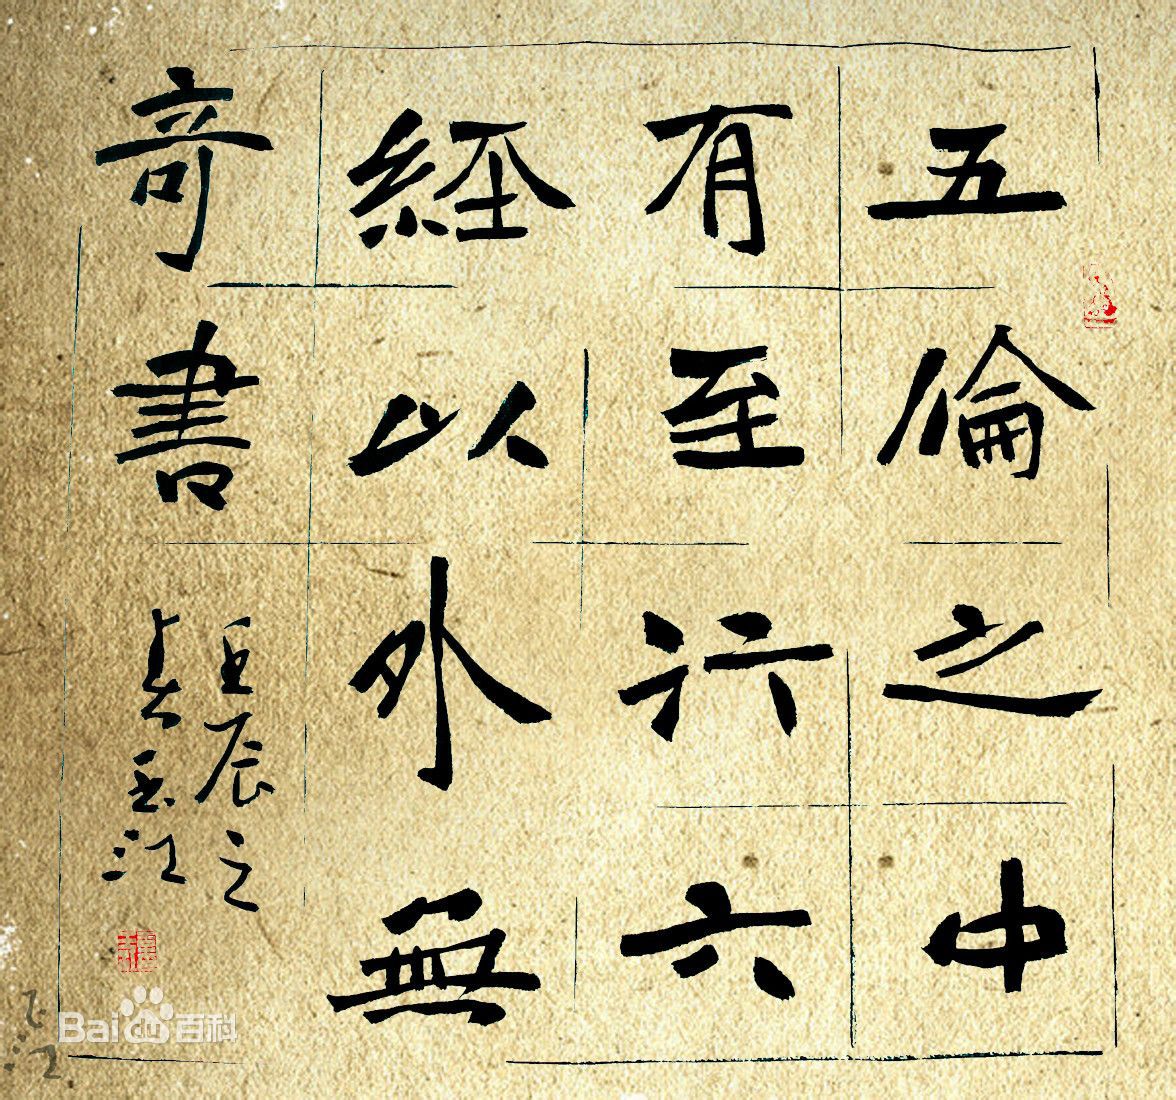 五倫之中
有至行六
經以外無
奇書
壬辰之
春
Baidu百科